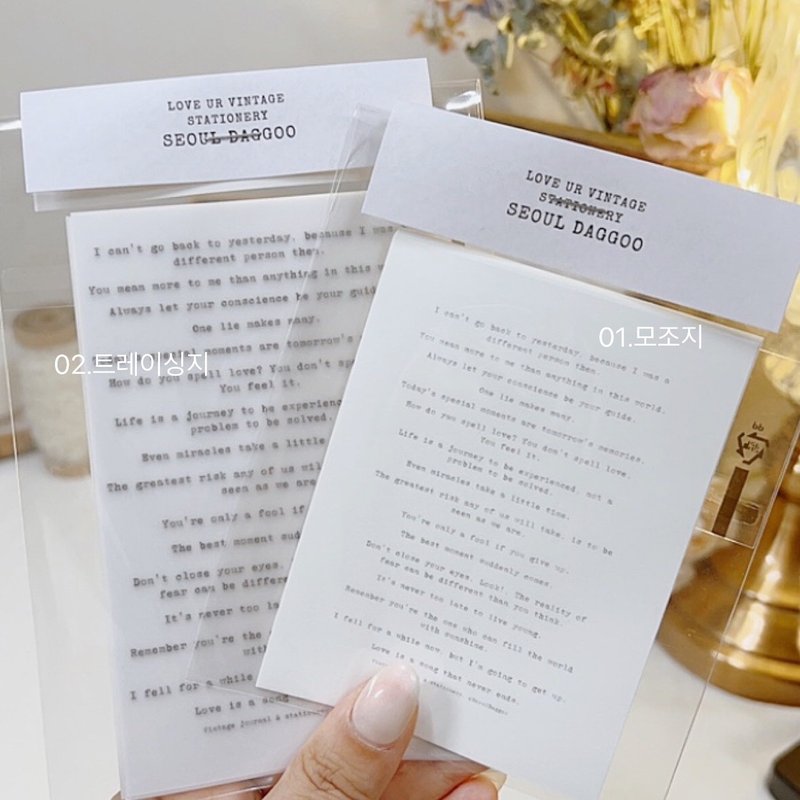 LOVE UR VINTAGE
STATIONERY
SEOUL DAGGOO
I can't go back to yesterday, because I was
different person then.
You mean more to me than anything in this w
Always let your conscience be your guid
One lie makes many.
moments are tomorrow's
How do you spell love? You don't sp
You feel it.
Life is a journey to be experienc
problem to be solved.
Even miracles take a little
The greatest risk any of us wil
seen as we are
You're only a fool if
The best moment sud
Don't close your eyes.
fear can be differe
It's never too la
Remember you're the
with
I fell for a while
Love is a song
Vintage journal & station
02.트레이싱지
LOVE UR VINTAGE
STATIONERY
SEOUL DAGGOO
I can't go back to yesterday, because I was a
different person then.
You mean more to me than anything in this world.
Always let your conscience be your guide.
One lie makes many.
Today's special moments are tomorrow's memories.
How do you spell love? You don't spell love.
You feel it.
Life is a journey to be experienced, not a
problem to be solved.
Even miracles take a little time.
The greatest risk any of us will take, is to be
seen as we are.
You're only a fool if you give up.
The best moment suddenly comes.
Don't close your eyes. Look!. The reality of
fear can be different than you think.
It's never too late to live young.
Remember you're the one who can fill the world
with sunshine.
I fell for a while now, but I'm going to get up.
Love is a song that never ends.
01.모조지